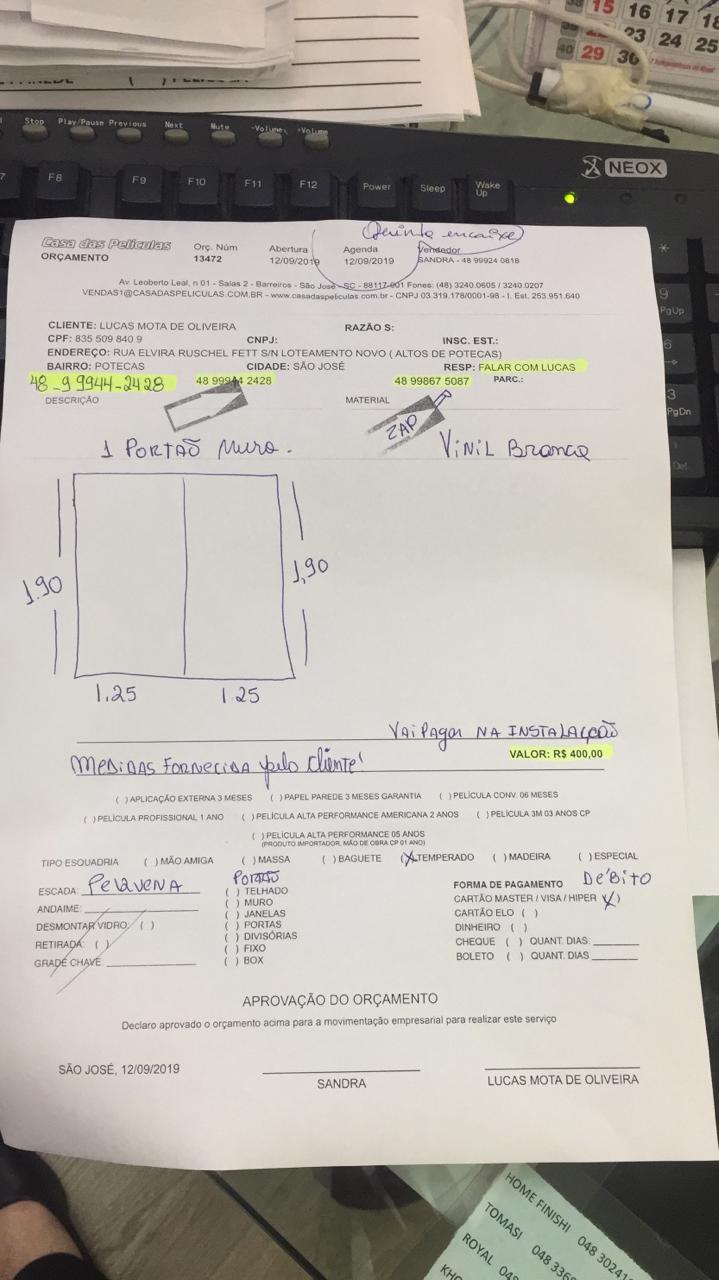 15 16 17 18
23 24 25
29 30
Stop Play/Pause Previous Next Mute -Volume +Volume
F8 F9 F10 F11 F12 Power Sleep Wake Up
NEOX
9 PgUp
6
3 PgDn
Casa das Películas
ORÇAMENTO
Orç. Núm
13472
Abertura
12/09/2019
Agenda
12/09/2019
Quinta encaixe
Vendedor
SANDRA - 48 99924 0818
Av. Leoberto Leal, n 01 - Salas 2 - Barreiros - São José - SC - 88117-001 Fones: (48) 3240.0605 / 3240.0207
VENDAS1@CASADASPELICULAS.COM.BR - www.casadaspeliculas.com.br - CNPJ 03.319.178/0001-98 - I. Est. 253.951.640
CLIENTE: LUCAS MOTA DE OLIVEIRA RAZÃO S:
CPF: 835 509 840 9 CNPJ: INSC. EST.:
ENDEREÇO: RUA ELVIRA RUSCHEL FETT S/N LOTEAMENTO NOVO ( ALTOS DE POTECAS)
BAIRRO: POTECAS CIDADE: SÃO JOSÉ RESP: FALAR COM LUCAS
48-9 9944-2428 48 99944 2428 48 99867 5087 PARC.:
DESCRIÇÃO MATERIAL
ZAP
1 PORTÃO Muro. ViNiL Branco
1.90 1,90
1.25 1.25
Vai Pagar NA INSTALAÇÃO
VALOR: R$ 400,00
MEDIDAS FORNECIDA pelo Cliente!
( ) APLICAÇÃO EXTERNA 3 MESES ( ) PAPEL PAREDE 3 MESES GARANTIA ( ) PELÍCULA CONV. 06 MESES
( ) PELÍCULA PROFISSIONAL 1 ANO ( ) PELÍCULA ALTA PERFORMANCE AMERICANA 2 ANOS ( ) PELÍCULA 3M 03 ANOS CP
( ) PELÍCULA ALTA PERFORMANCE 05 ANOS
(PRODUTO IMPORTADOR, MÃO DE OBRA CP 01 ANO)
TIPO ESQUADRIA ( ) MÃO AMIGA ( ) MASSA ( ) BAGUETE (X) TEMPERADO ( ) MADEIRA ( ) ESPECIAL
ESCADA:
ANDAIME:
DESMONTAR VIDRO: ( )
RETIRADA: ( )
GRADE CHAVE:
PORTÃO
( ) TELHADO
( ) MURO
( ) JANELAS
( ) PORTAS
( ) DIVISÓRIAS
( ) FIXO
( ) BOX
FORMA DE PAGAMENTO DÉBITO
CARTÃO MASTER / VISA / HIPER (X)
CARTÃO ELO ( )
DINHEIRO ( )
CHEQUE ( ) QUANT. DIAS:
BOLETO ( ) QUANT. DIAS
APROVAÇÃO DO ORÇAMENTO
Declaro aprovado o orçamento acima para a movimentação empresarial para realizar este serviço
SÃO JOSÉ, 12/09/2019
SANDRA
LUCAS MOTA DE OLIVEIRA
HOME FINISHI 048 30241
TOMASI 048 336
ROYAL 048